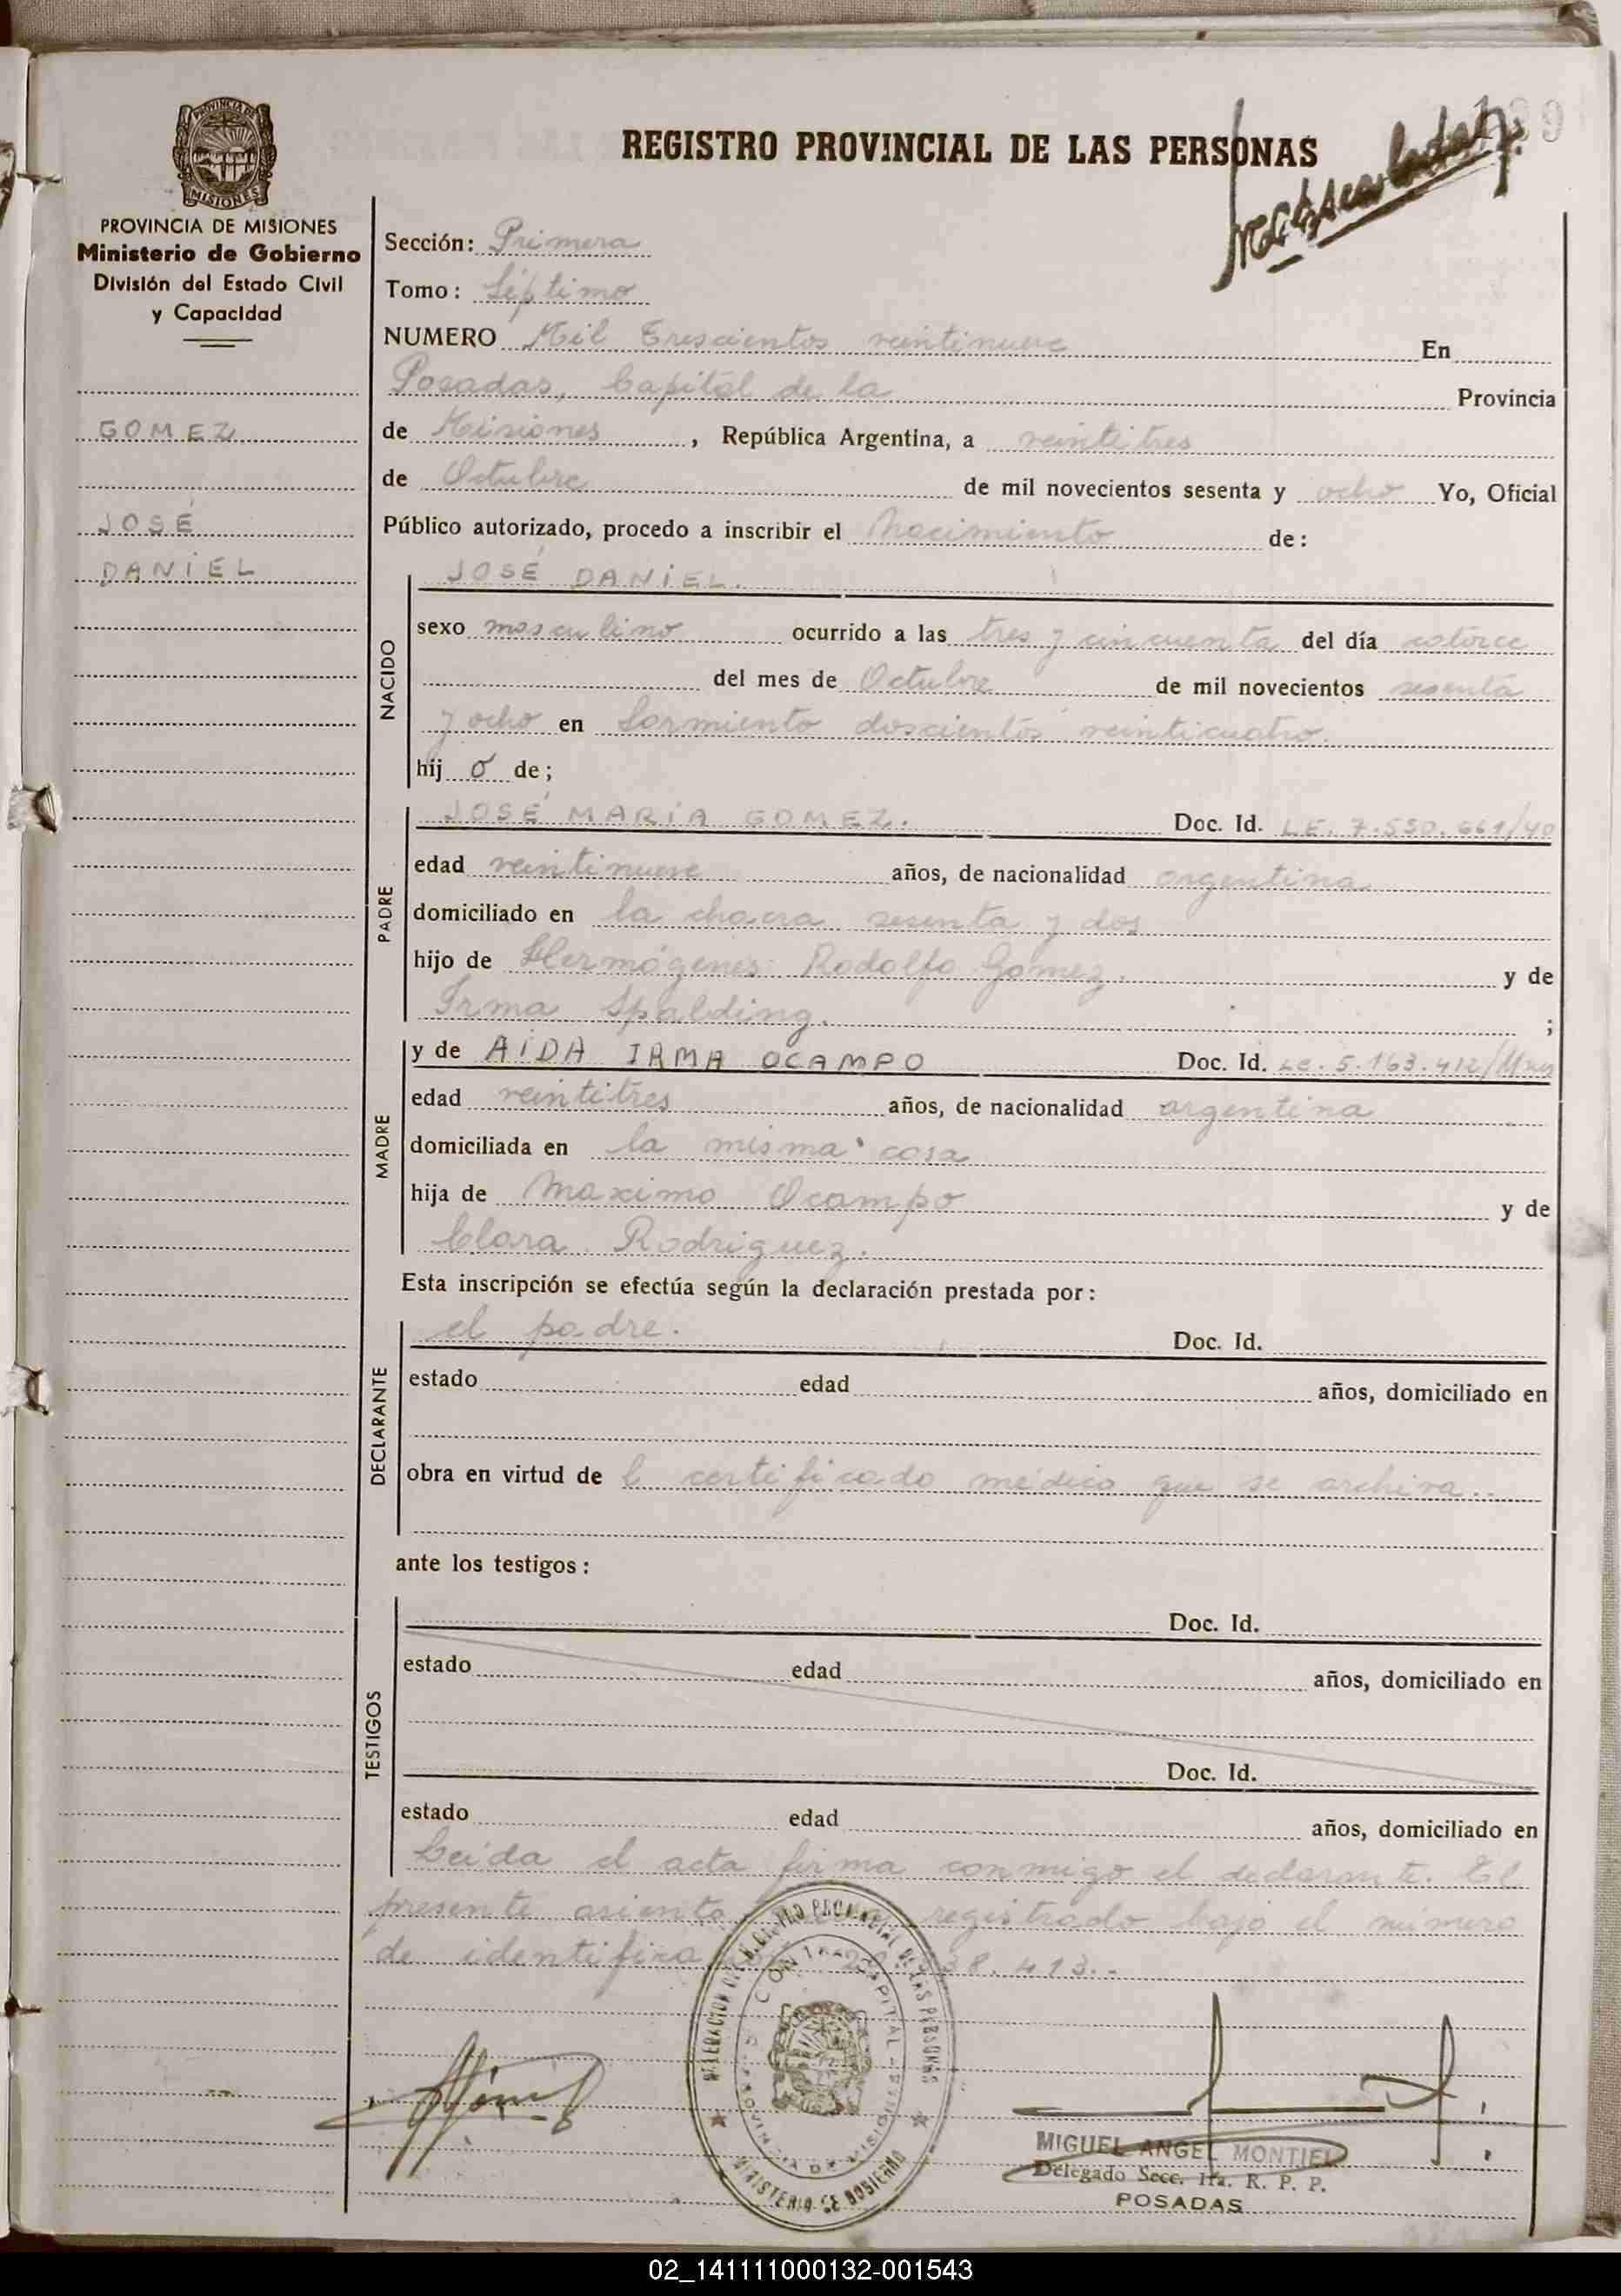 REGISTRO PROVINCIAL DE LAS PERSONAS
PROVINCIA DE MISIONES
MISIONES
PROVINCIA DE MISIONES
Ministerio de Gobierno
División del Estado Civil
y Capacidad
GOMEZ
JOSÉ
DANIEL
Sección: Primera
Tomo: Séptimo
NUMERO Mil Trescientos veintinueve En
Posadas, Capital de la Provincia
de Misiones, República Argentina, a veintitres
de Octubre de mil novecientos sesenta y ocho Yo, Oficial
Público autorizado, procedo a inscribir el Nacimiento de:
NACIDO
JOSÉ DANIEL.
sexo masculino ocurrido a las tres y cincuenta del día catorce
del mes de Octubre de mil novecientos sesenta
y ocho en Sarmiento doscientos veinticuatro.
hij o de;
PADRE
JOSÉ MARÍA GOMEZ. Doc. Id. L.E. 7.550.661/40
edad veintinueve años, de nacionalidad argentina
domiciliado en la chacra sesenta y dos
hijo de Hermógenes Rodolfo Gomez. y de
Irma Spalding. ;
MADRE
y de AIDA IRMA OCAMPO Doc. Id. LC. 5.163.412/Mnes
edad veintitres años, de nacionalidad argentina
domiciliada en la misma casa
hija de Maximo Ocampo y de
Clara Rodriguez.
Esta inscripción se efectúa según la declaración prestada por:
DECLARANTE
el padre. Doc. Id.
estado edad años, domiciliado en
obra en virtud de certificado médico que se archiva..
ante los testigos:
TESTIGOS
Doc. Id.
estado edad años, domiciliado en
Doc. Id.
estado edad años, domiciliado en
Leída el acta firma conmigo el declarante. El
presente asiento registrado bajo el número
de 38.413.-
REGISTRO PROVINCIAL DE LAS PERSONAS
CAPITAL
PROVINCIA DE MISIONES
MINISTERIO DE GOBIERNO
MIGUEL ANGEL MONTIEL
Delegado Secc. 1ra. R. P. P.
POSADAS
02_141111000132-001543